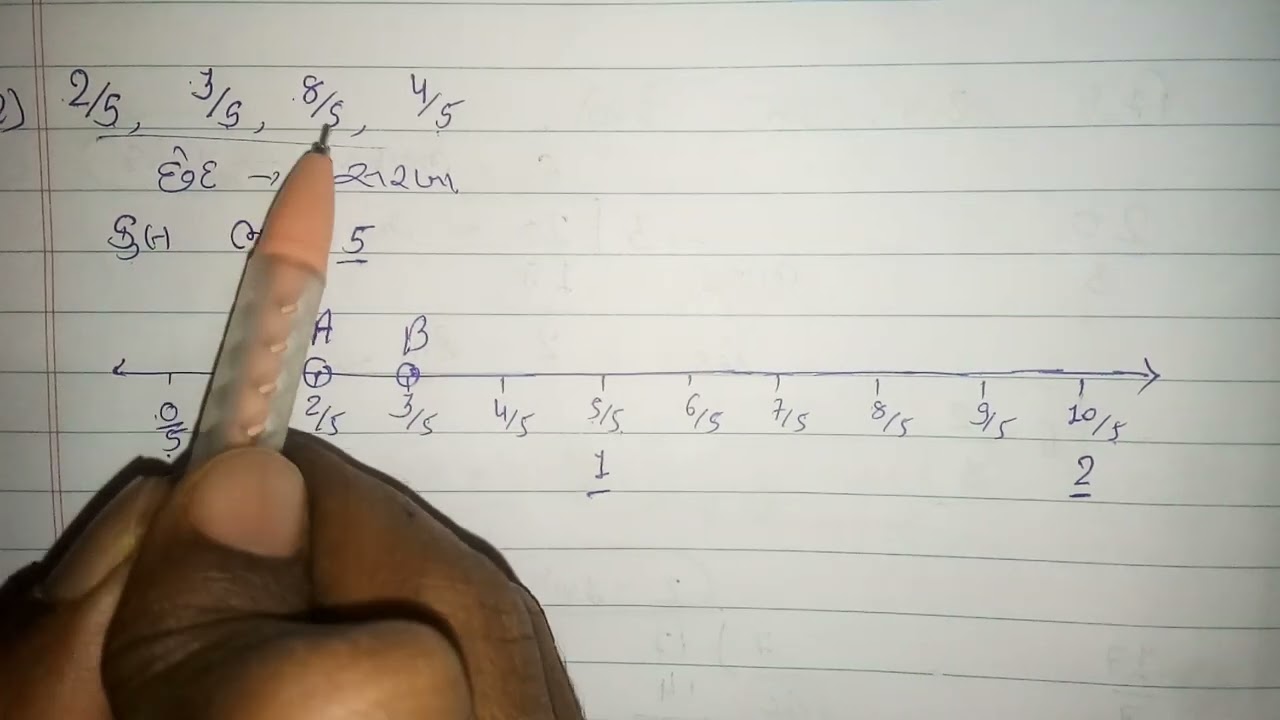 2/5, 3/5, 8/5, 4/5
છેદ → સરખા
કુલ 5
A B
0/5 2/5 3/5 4/5 5/5 6/5 7/5 8/5 9/5 10/5
1 2